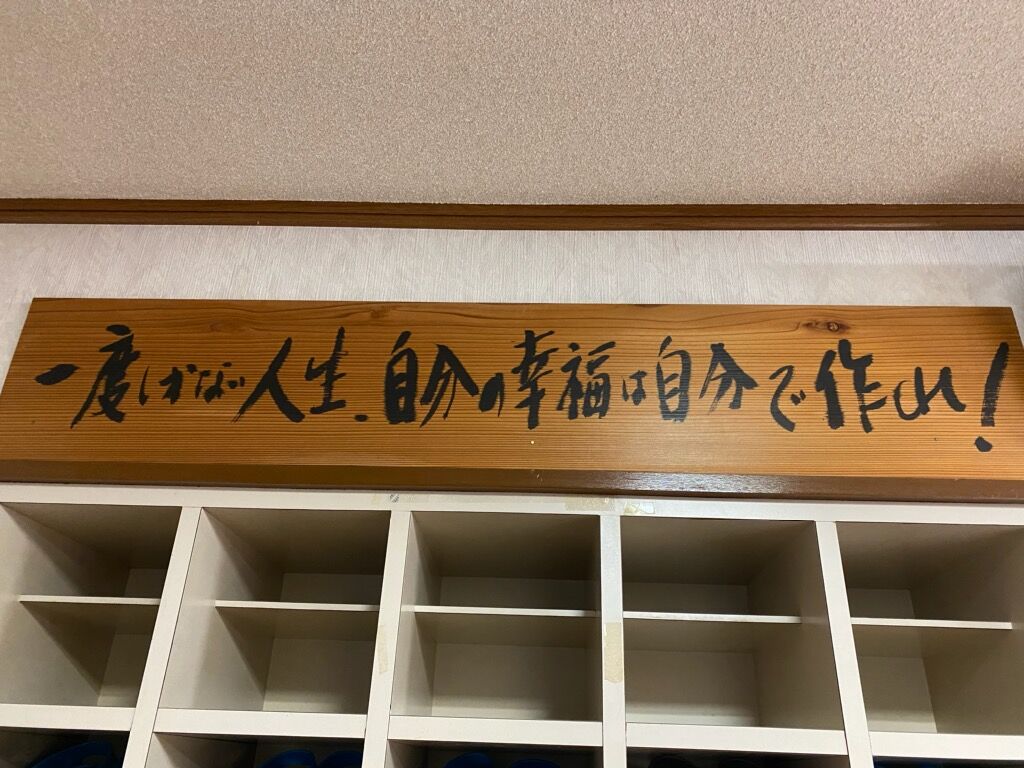 一度しかない人生、自分の幸福は自分で作れ!